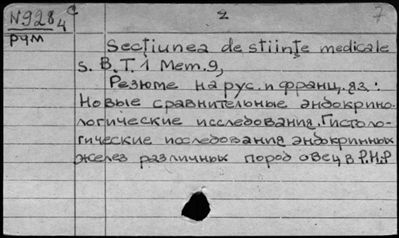 N928 4 c 2 7
рум
Secţiunea de stiinţe medicale
s. B. T. 1 Mem. 9,
Резюме на рус. и франц. яз.:
Новые сравнительные эндокрино-
логические исследования. Гистоло-
гические исследования эндокринных
желез различных пород овец в Р.Н.Р